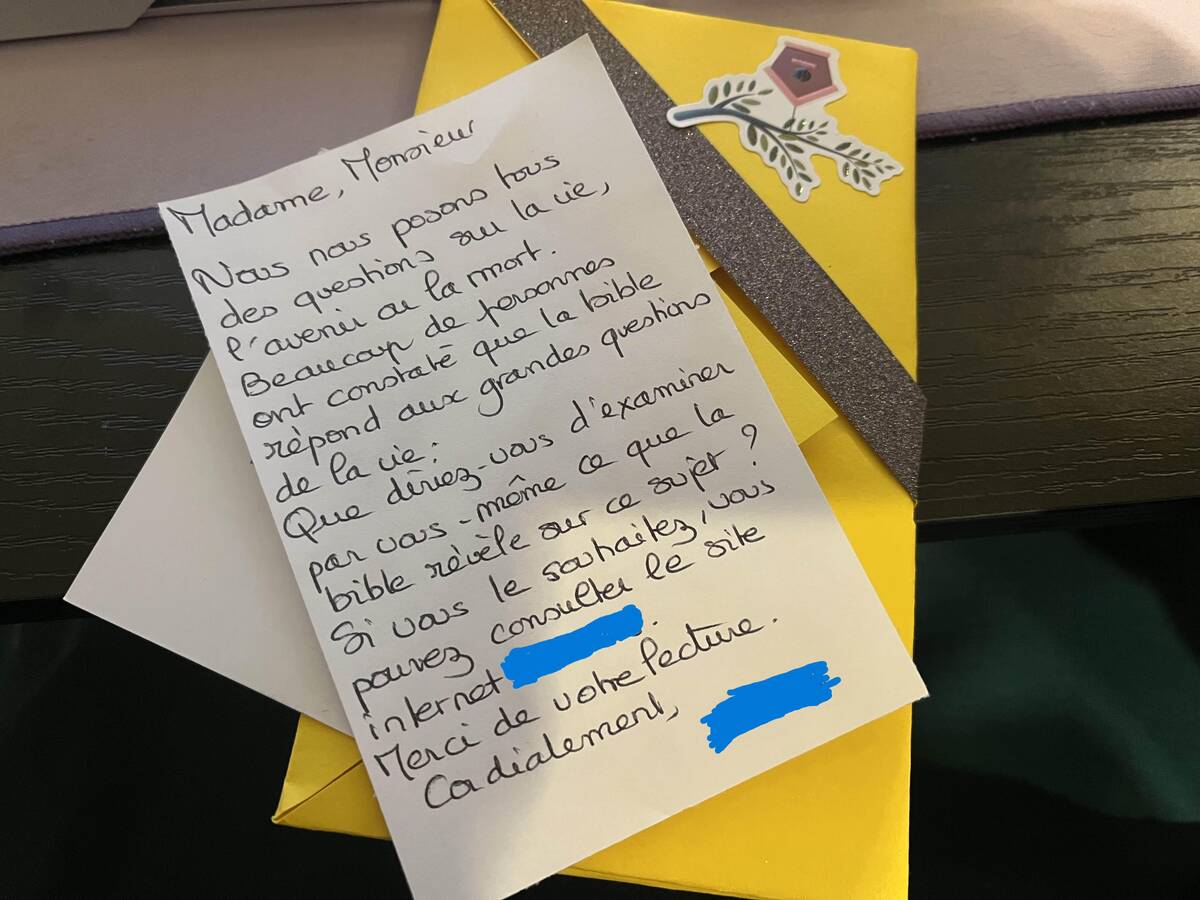 Madame, Monsieur
Nous nous posons tous
des questions sur la vie,
l'avenir ou la mort.
Beaucoup de personnes
ont constaté que la bible
répond aux grandes questions
de la vie :
Que diriez-vous d'examiner
par vous-même ce que la
bible révèle sur ce sujet ?
Si vous le souhaitez, vous
pouvez consulter le site
internet .
Merci de votre lecture.
Cordialement,